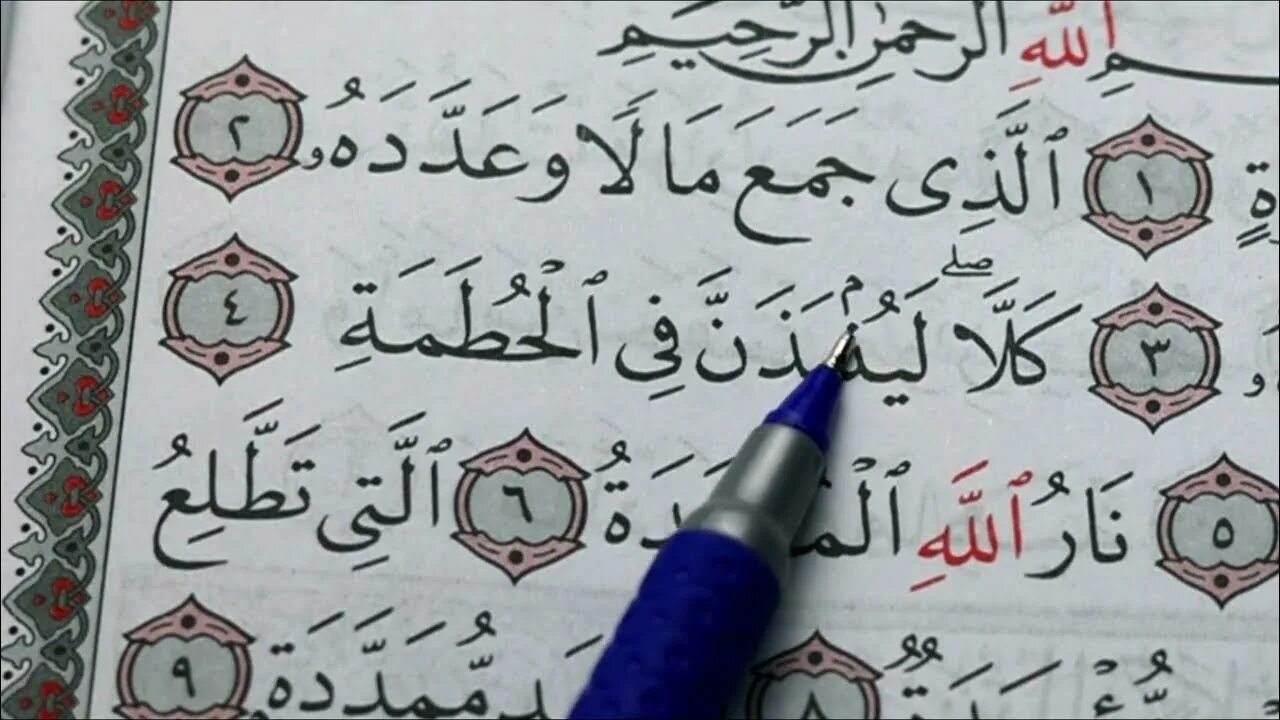 ٱللَّهِ الرَّحْمَٰنِ الرَّحِيمِ
١ ٱلَّذِى جَمَعَ مَالًا وَعَدَّدَهُۥ ٢
٣ كَلَّاۖ لَيُنۢبَذَنَّ فِى ٱلْحُطَمَةِ ٤
٥ نَارُ ٱللَّهِ ٦ ٱلَّتِى تَطَّلِعُ
٨ مُّمَدَّدَةٍۭ ٩